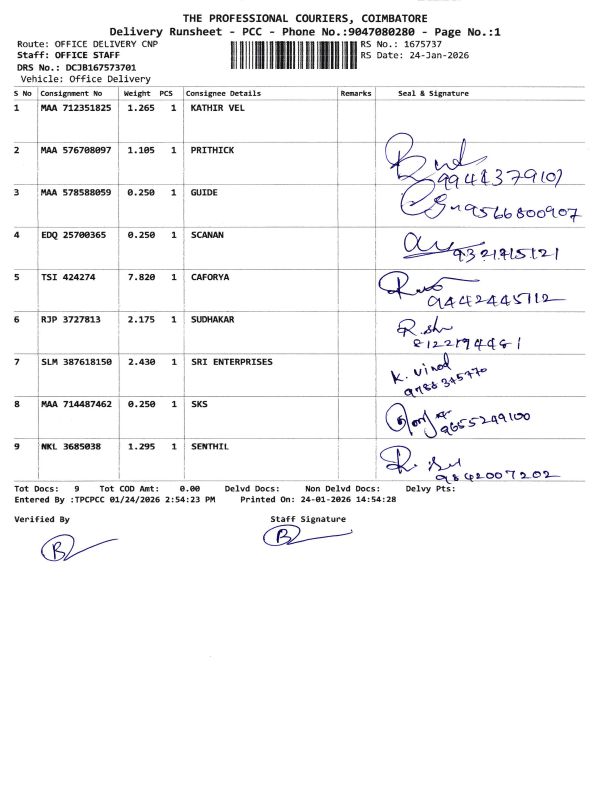 THE PROFESSIONAL COURIERS, COIMBATORE
Delivery Runsheet - PCC - Phone No.:9047080280 - Page No.:1
Route: OFFICE DELIVERY CNP RS No.: 1675737
Staff: OFFICE STAFF RS Date: 24-Jan-2026
DRS No.: DCJB167573701
Vehicle: Office Delivery
S No Consignment No Weight PCS Consignee Details Remarks Seal & Signature
1 MAA 712351825 1.265 1 KATHIR VEL
2 MAA 576708097 1.105 1 PRITHICK
9944379107
3 MAA 578588059 0.250 1 GUIDE
9566800907
4 EDQ 25700365 0.250 1 SCANAN
5 TSI 424274 7.820 1 CAFORYA
9442445112
6 RJP 3727813 2.175 1 SUDHAKAR
8122194481
7 SLM 387618150 2.430 1 SRI ENTERPRISES
K. Vinod
9788345770
8 MAA 714487462 0.250 1 SKS
9655249100
9 NKL 3685038 1.295 1 SENTHIL
9842007202
Tot Docs: 9 Tot COD Amt: 0.00 Delvd Docs: Non Delvd Docs: Delvy Pts:
Entered By :TPCPCC 01/24/2026 2:54:23 PM Printed On: 24-01-2026 14:54:28
Verified By Staff Signature
B B